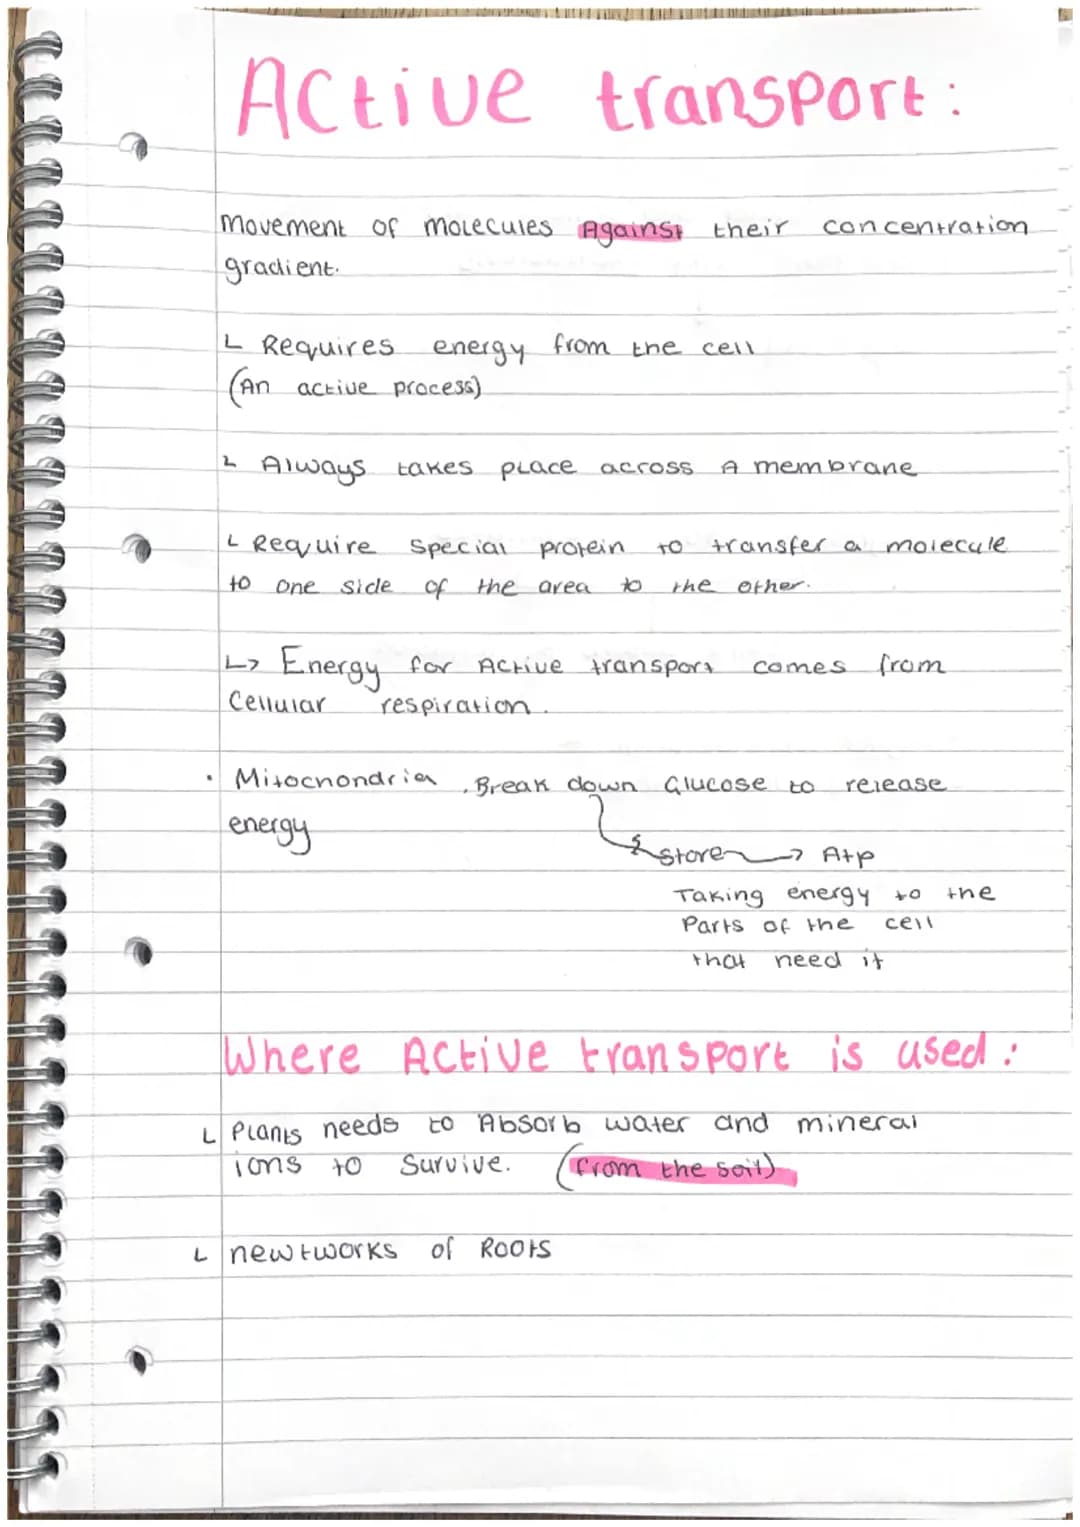 Active transport:
Movement of molecules Against their concentration
gradient.
Requires energy from the cell
(An active process)
Always takes place across A membrane
Require special protein to transfer a molecule
to one side of the area to the other.
↳ Energy for Active transport comes from
Cellular respiration.
• Mitochondria. Break down Glucose to release
energy
store → Atp
Taking energy to the
Parts of the cell
that need it
Where Active transport is used:
Plants needs to Absorb water and mineral
ions to Survive. (from the soil)
newtworks of Roots